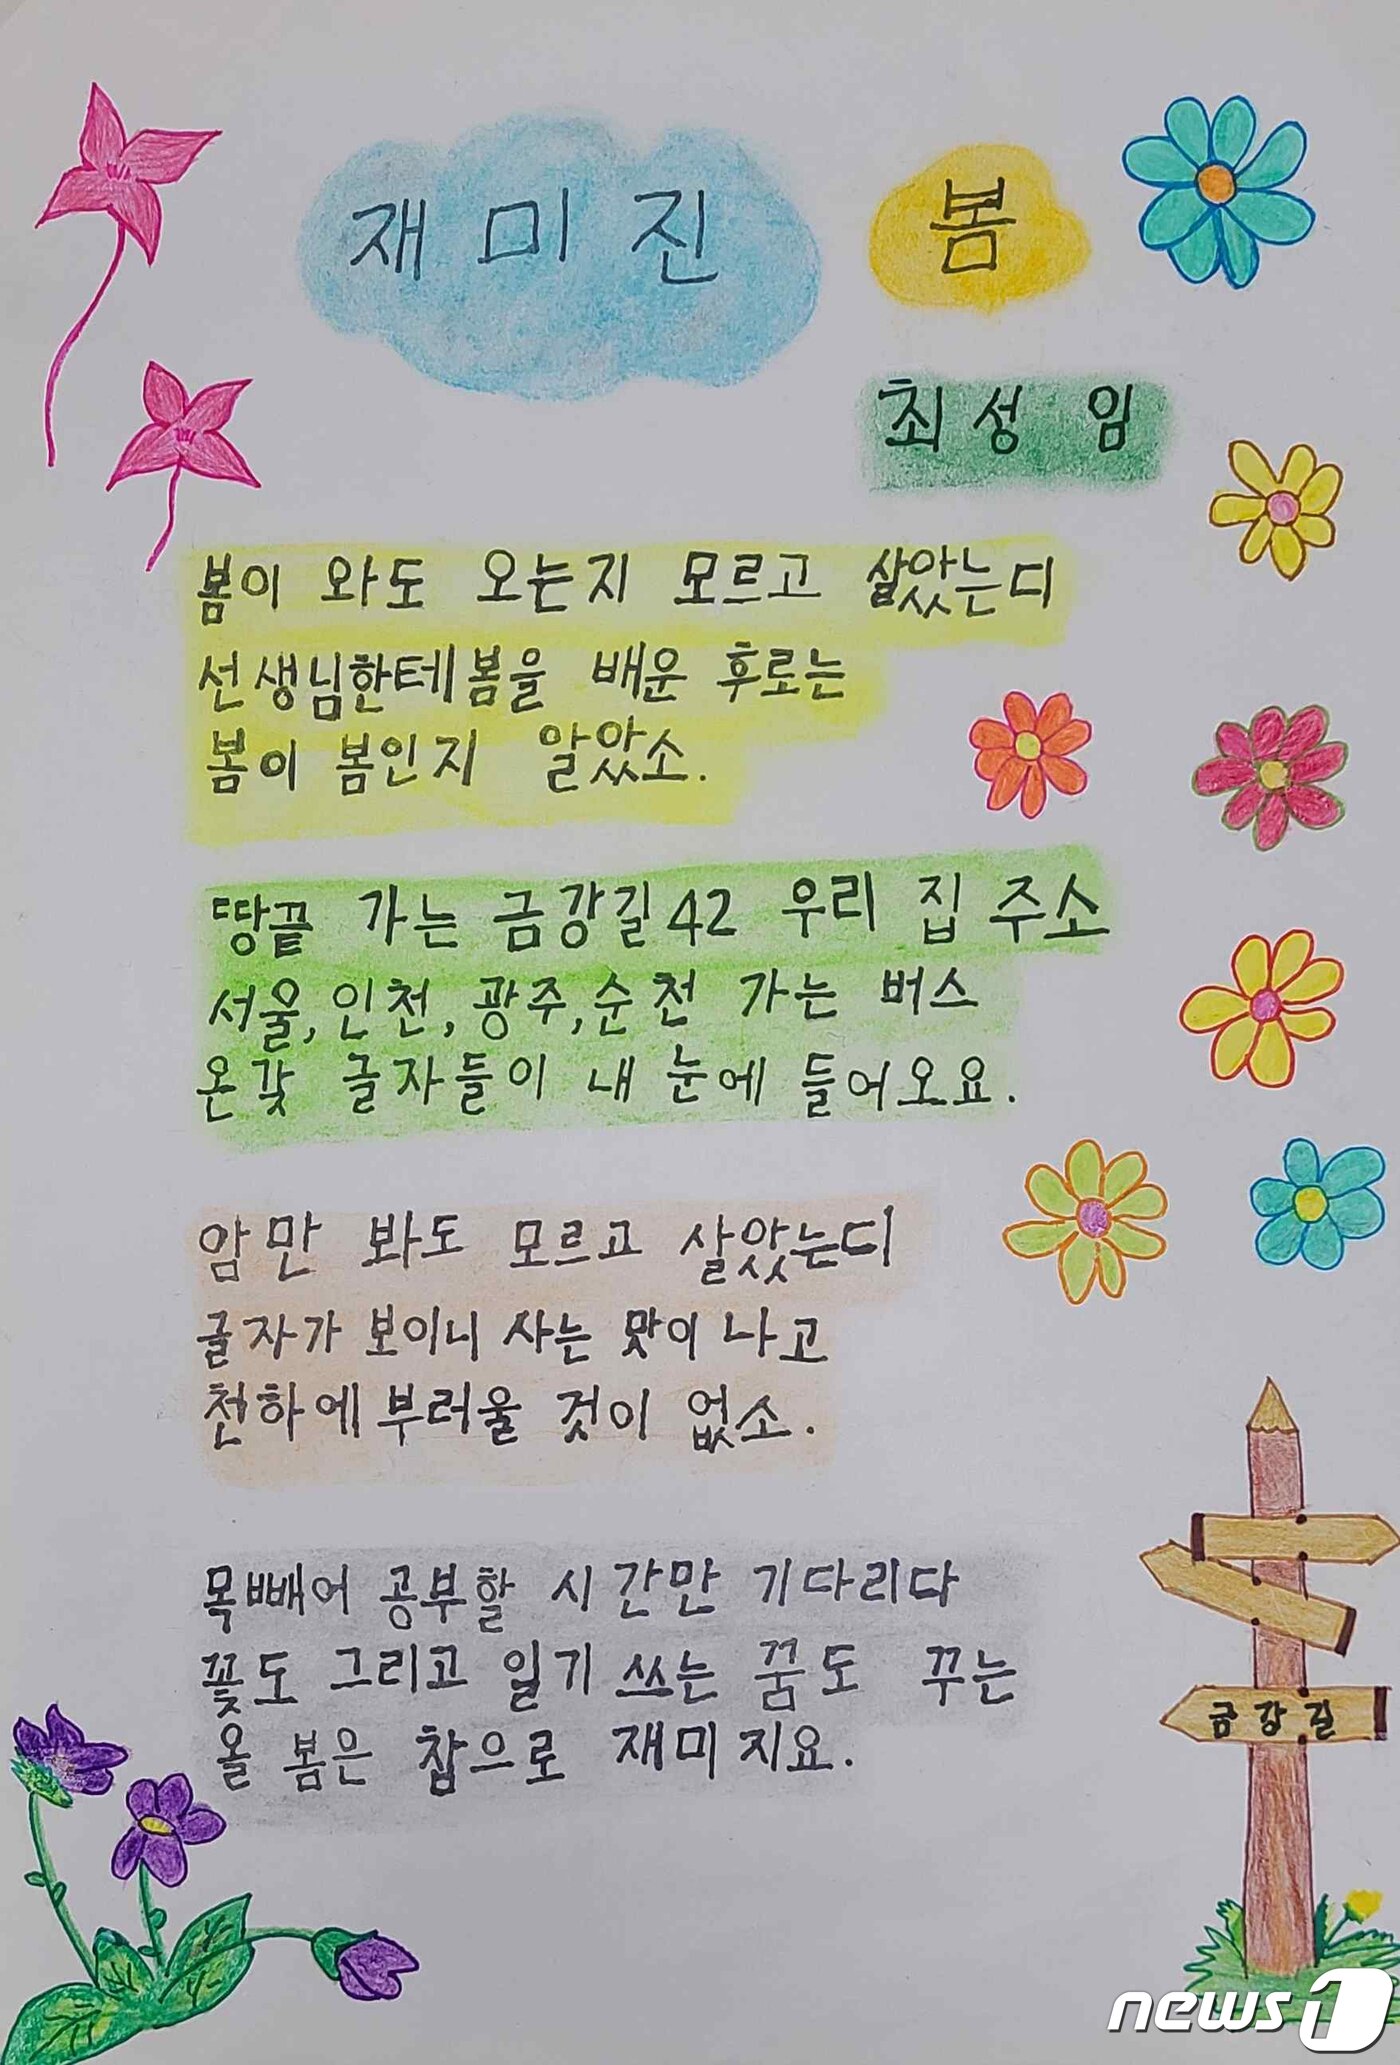 재미진 봄
최성임
봄이 와도 오는지 모르고 살았는디
선생님한테 봄을 배운 후로는
봄이 봄인지 알았소.
땅끝 가는 금강길 42 우리 집 주소
서울, 인천, 광주, 순천 가는 버스
온갖 글자들이 내 눈에 들어오요.
암만 봐도 모르고 살았는디
글자가 보이니 사는 맛이 나고
천하에 부러울 것이 없소.
목빼어 공부할 시간만 기다리다
꽃도 그리고 일기 쓰는 꿈도 꾸는
올 봄은 참으로 재미지요.
금강길
news1